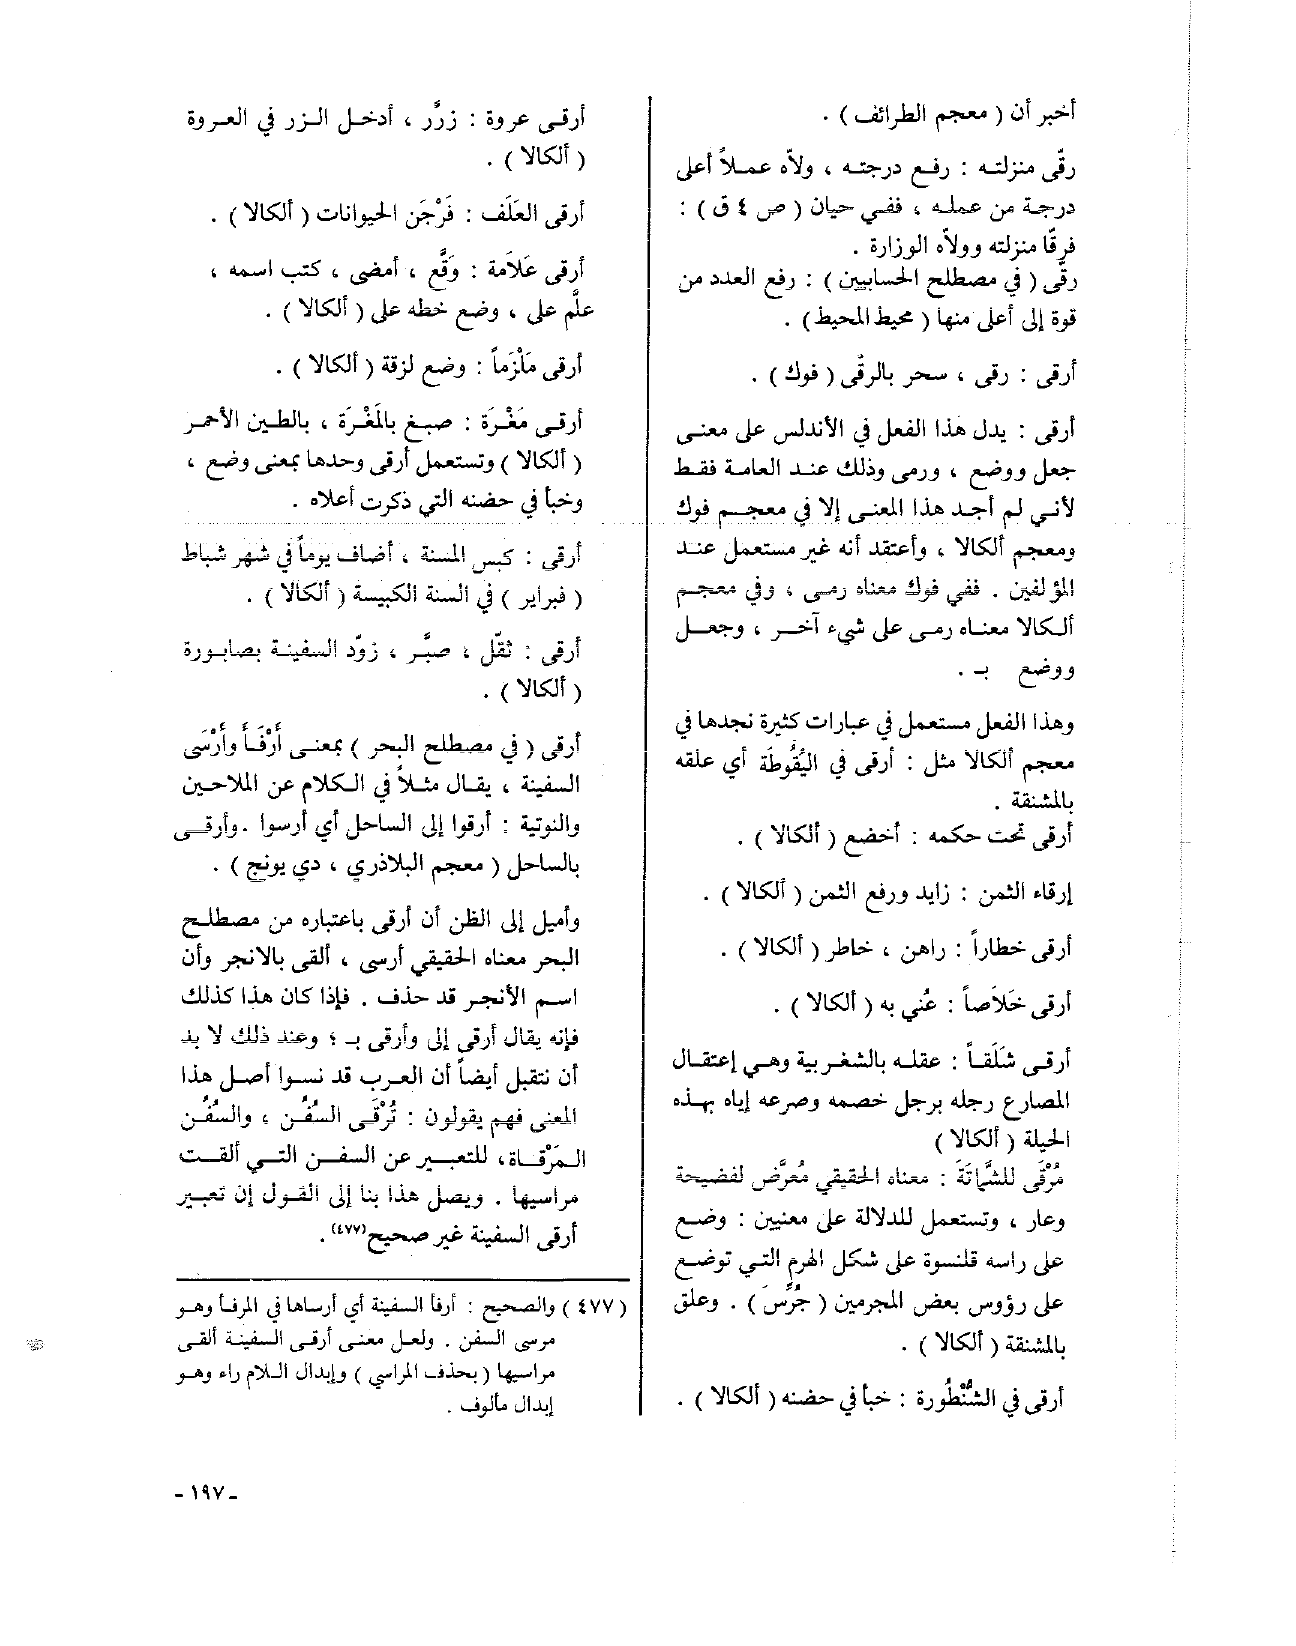 أخبر أن ( معجم الطرائف ) .
رقّى منزلته : رفع درجته ، ولاّه عملاً أعلى
درجة من عمله ، ففي حيان ( ص ٤ ق ) :
فرقّا منزلته وولاّه الوزارة .
رقّى ( في مصطلح الحسابيين ) : رفع العدد من
قوة إلى أعلى منها ( محيط المحيط ) .
أرقى : رقى ، سحر بالرقُى ( فوك ) .
أرقى : يدل هذا الفعل في الأندلس على معنى
جعل ووضع ، ورمى وذلك عند العامة فقط
لأني لم أجد هذا المعنى إلا في معجم فوك
ومعجم ألكالا ، وأعتقد أنه غير مستعمل عند
المؤلفين . ففي فوك معناه رمى ، وفي معجم
ألكالا معناه رمى على شيء آخر ، وجعل
ووضع بـ .
وهذا الفعل مستعمل في عبارات كثيرة نجدها في
معجم ألكالا مثل : أرقى في اليُقُوطَة أي علقه
بالمشنقة .
أرقى تحت حكمه : أخضع ( ألكالا ) .
إرقاء الثمن : زايد ورفع الثمن ( ألكالا ) .
أرقى خطاراً : راهن ، خاطر ( ألكالا ) .
أرقى خَلَاصاً : عُني به ( ألكالا ) .
أرقى شَلَقاً : عقله بالشغربية وهي إعتقال
المصارع رجله برجل خصمه وصرعه إياه بهذه
الحيلة ( ألكالا )
مُرْقَى للشَّماتَة : معناه الحقيقي مُعرَّض لفضيحة
وعار ، وتستعمل للدلالة على معنيين : وضع
على راسه قلنسوة على شكل الهرم التي توضع
على رؤوس بعض المجرمين ( جُرَّس ) . وعلق
بالمشنقة ( ألكالا ) .
أرقى في الشُنْطُورة : خبأ في حضنه ( ألكالا ) .
أرقى عروة : زرَّر ، أدخل الزر في العروة
( ألكالا ) .
أرقى العَلَف : فَرْجَن الحيوانات ( ألكالا ) .
أرقى عَلاَمة : وَقَّع ، أمضى ، كتب اسمه ،
علَّم على ، وضع خطه على ( ألكالا ) .
أرقى مَلْزَماً : وضع لزقة ( ألكالا ) .
أرقى مَغْرَة : صبغ بالمَغْرَة ، بالطين الأحمر
( ألكالا ) وتستعمل أرقى وحدها بمعنى وضع ،
وخبأ في حضنه التي ذكرت أعلاه .
أرقى : كبس السنة ، أضاف يوماً في شهر شباط
( فبراير ) في السنة الكبيسة ( ألكالا ) .
أرقى : ثقّل ، صبَّر ، زوّد السفينة بصابورة
( ألكالا ) .
أرقى ( في مصطلح البحر ) بمعنى أَرْفَأَ وأَرْسَى
السفينة ، يقال مثلاً في الكلام عن الملاحين
والنوتية : أرقوا إلى الساحل أي أرسوا . وأرقى
بالساحل ( معجم البلاذري ، دي يونج ) .
وأميل إلى الظن أن أرقى باعتباره من مصطلح
البحر معناه الحقيقي أرسى ، ألقى بالانجر وأن
اسم الأنجر قد حذف . فإذا كان هذا كذلك
فإنه يقال أرقى إلى وأرقى بـ ؛ وعند ذلك لا بد
أن نتقبل أيضاً أن العرب قد نسوا أصل هذا
المعنى فهم يقولون : تُرْقَى السُفُن ، والسُفُن
المَرْقَاة ، للتعبير عن السفن التي ألقت
مراسيها . ويصل هذا بنا إلى القول إن تعبير
أرقى السفينة غير صحيح(٤٧٧) .
( ٤٧٧ ) والصحيح : أرفأ السفينة أي أرساها في المرفأ وهو
مرسى السفن . ولعل معنى أرقى السفينة ألقى
مراسيها ( بحذف المراسي ) وإبدال اللام راء وهو
إبدال مألوف .
- ١٩٧ -